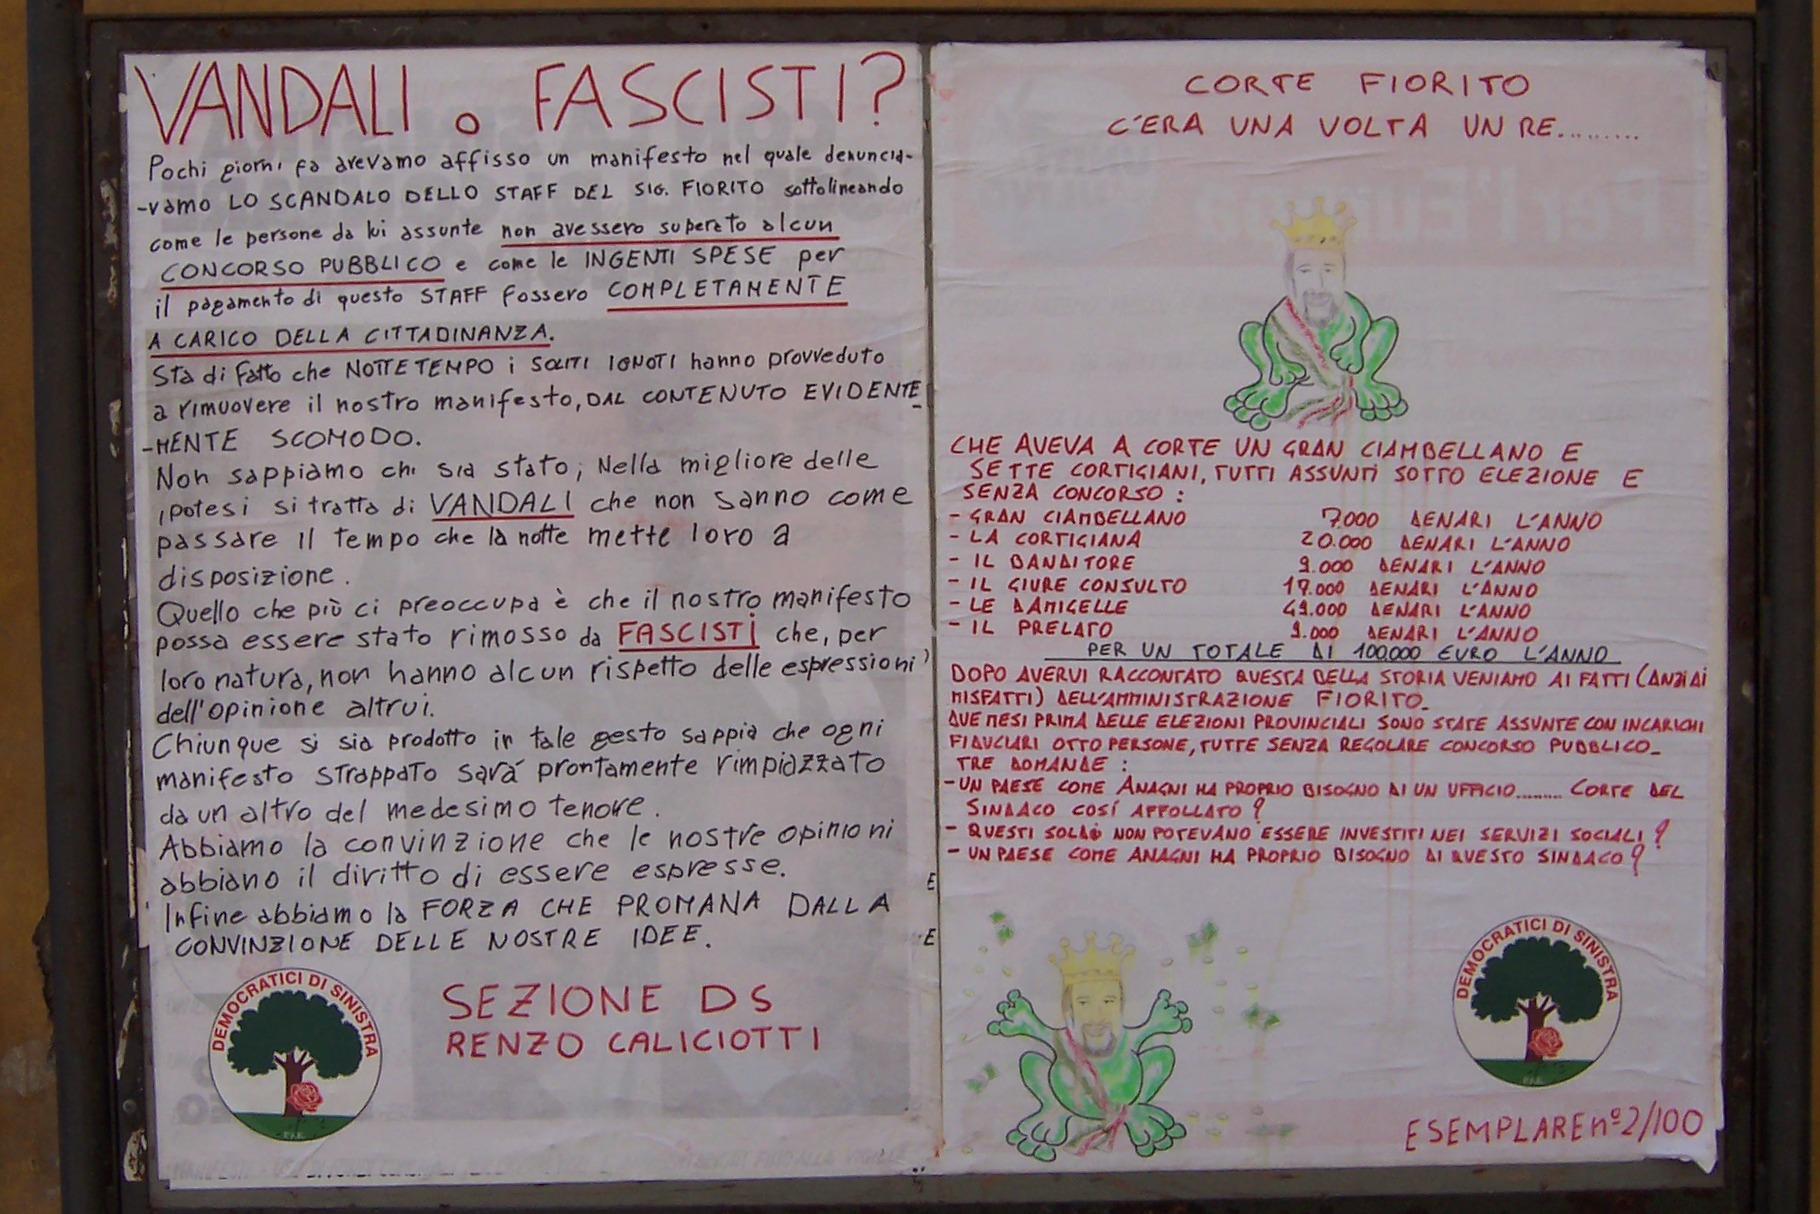 VANDALI o FASCISTI?
Pochi giorni fa avevamo affisso un manifesto nel quale denuncia-
-vamo LO SCANDALO DELLO STAFF DEL SIG. FIORITO sottolineando
come le persone da lui assunte non avessero superato alcun
CONCORSO PUBBLICO e come le INGENTI SPESE per
il pagamento di questo STAFF fossero COMPLETAMENTE
A CARICO DELLA CITTADINANZA.
Sta di fatto che NOTTETEMPO i SOLITI IGNOTI hanno provveduto
a rimuovere il nostro manifesto, DAL CONTENUTO EVIDENTE-
-MENTE SCOMODO.
Non sappiamo chi sia stato; Nella migliore delle
ipotesi si tratta di VANDALI che non sanno come
passare il tempo che la notte mette loro a
disposizione.
Quello che più ci preoccupa è che il nostro manifesto
possa essere stato rimosso da FASCISTI che, per
loro natura, non hanno alcun rispetto delle espressioni
dell'opinione altrui.
Chiunque si sia prodotto in tale gesto sappia che ogni
manifesto STRAPPATO sarà prontamente rimpiazzato
da un altro del medesimo tenore.
Abbiamo la convinzione che le nostre opinioni
abbiano il diritto di essere espresse.
Infine abbiamo la FORZA CHE PROMANA DALLA
CONVINZIONE DELLE NOSTRE IDEE.
DEMOCRATICI DI SINISTRA
SEZIONE DS
RENZO CALICIOTTI
CORTE FIORITO
C'ERA UNA VOLTA UN RE.........
CHE AVEVA A CORTE UN GRAN CIAMBELLANO E
SETTE CORTIGIANI, TUTTI ASSUNTI SOTTO ELEZIONE E
SENZA CONCORSO:
- GRAN CIAMBELLANO 7.000 DENARI L'ANNO
- LA CORTIGIANA 20.000 DENARI L'ANNO
- IL BANDITORE 9.000 DENARI L'ANNO
- IL GIURE CONSULTO 17.000 DENARI L'ANNO
- LE DAMIGELLE 49.000 DENARI L'ANNO
- IL PRELATO 9.000 DENARI L'ANNO
PER UN TOTALE DI 100.000 EURO L'ANNO
DOPO AVERVI RACCONTATO QUESTA BELLA STORIA VENIAMO AI FATTI (ANZI AI
MISFATTI) DELL'AMMINISTRAZIONE FIORITO_
DUE MESI PRIMA DELLE ELEZIONI PROVINCIALI SONO STATE ASSUNTE CON INCARICHI
FIDUCIARI OTTO PERSONE, TUTTE SENZA REGOLARE CONCORSO PUBBLICO_
TRE DOMANDE:
- UN PAESE COME ANAGNI HA PROPRIO BISOGNO DI UN UFFICIO......... CORTE DEL
SINDACO COSÍ AFFOLLATO?
- QUESTI SOLDI NON POTEVANO ESSERE INVESTITI NEI SERVIZI SOCIALI?
- UN PAESE COME ANAGNI HA PROPRIO BISOGNO DI QUESTO SINDACO?
DEMOCRATICI DI SINISTRA
ESEMPLARE nº 2/100